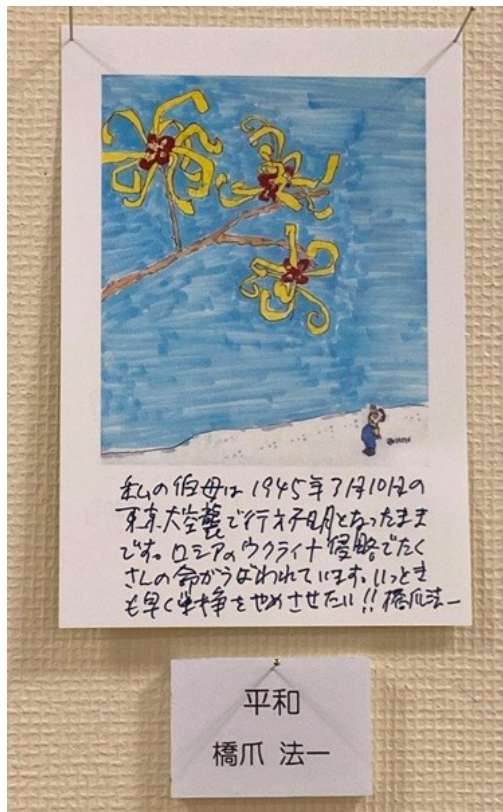 私の伯母は1945年3月10日の
東京大空襲で行方不明となったまま
です。ロシアのウクライナ侵略でたく
さんの命がうばわれています。いっとき
も早く戦争をやめさせたい!!橋爪法一
平和
橋爪 法一